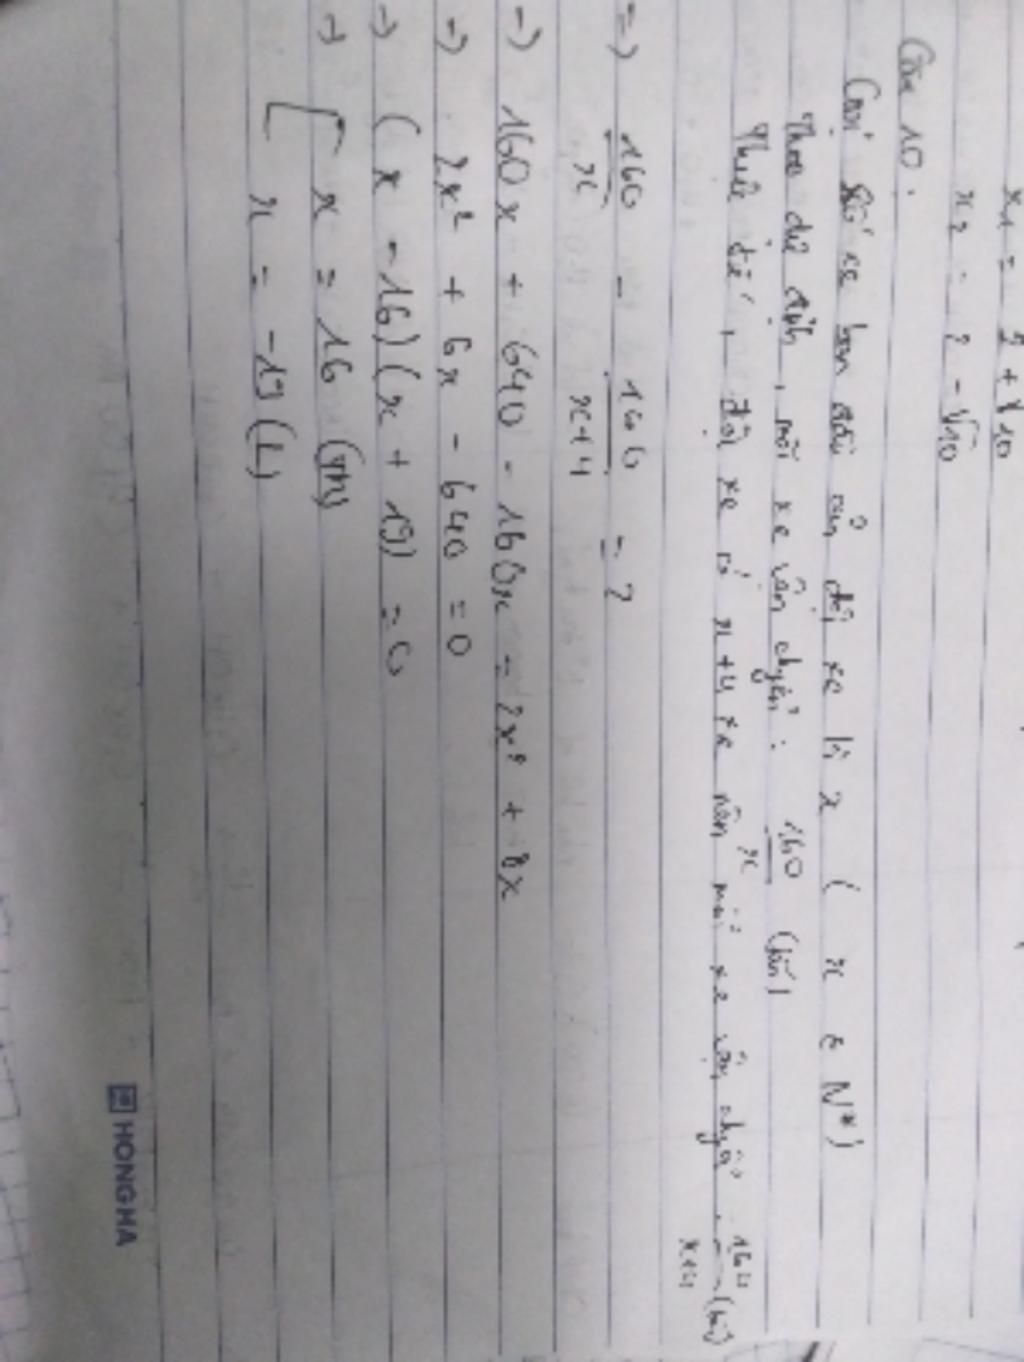 x₁ = 2 + √10
x₂ = 2 - √10
Câu 10.
Gọi số xe ban đầu của đội xe là x ( x ∈ N*)
Theo dự định, mỗi xe vận chuyển : 160/x (tấn)
Thực tế, đội xe có x+4 xe nên mỗi xe vận chuyển : 160/x+4 (tấn)
=> 160/x - 160/x+4 = 2
-> 160x + 640 - 160x = 2x² + 8x
-> 2x² + 6x - 640 = 0
-> (x - 16)(x + 19) = 0
-> [ x = 16 (tm)
x = -19 (L)
HONGHA